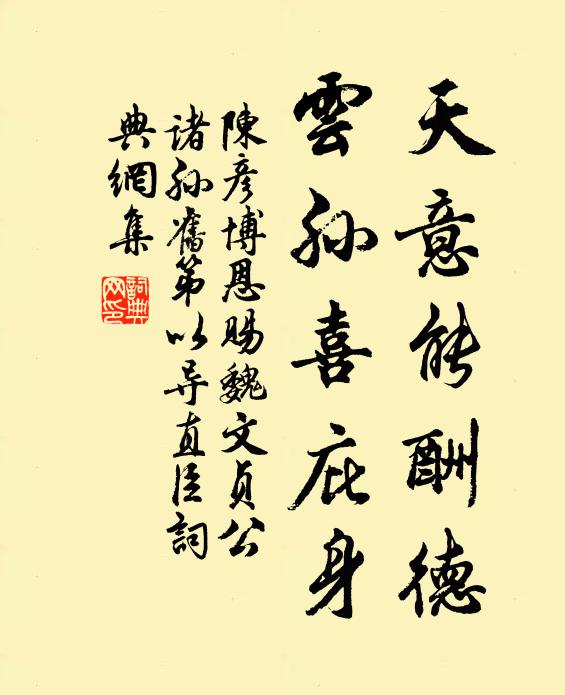 天意能酬德
雲孫喜庇身
陳彥博恩賜魏文貞公
諸孫舊第以导直臣詞
典網集
詞典
网印